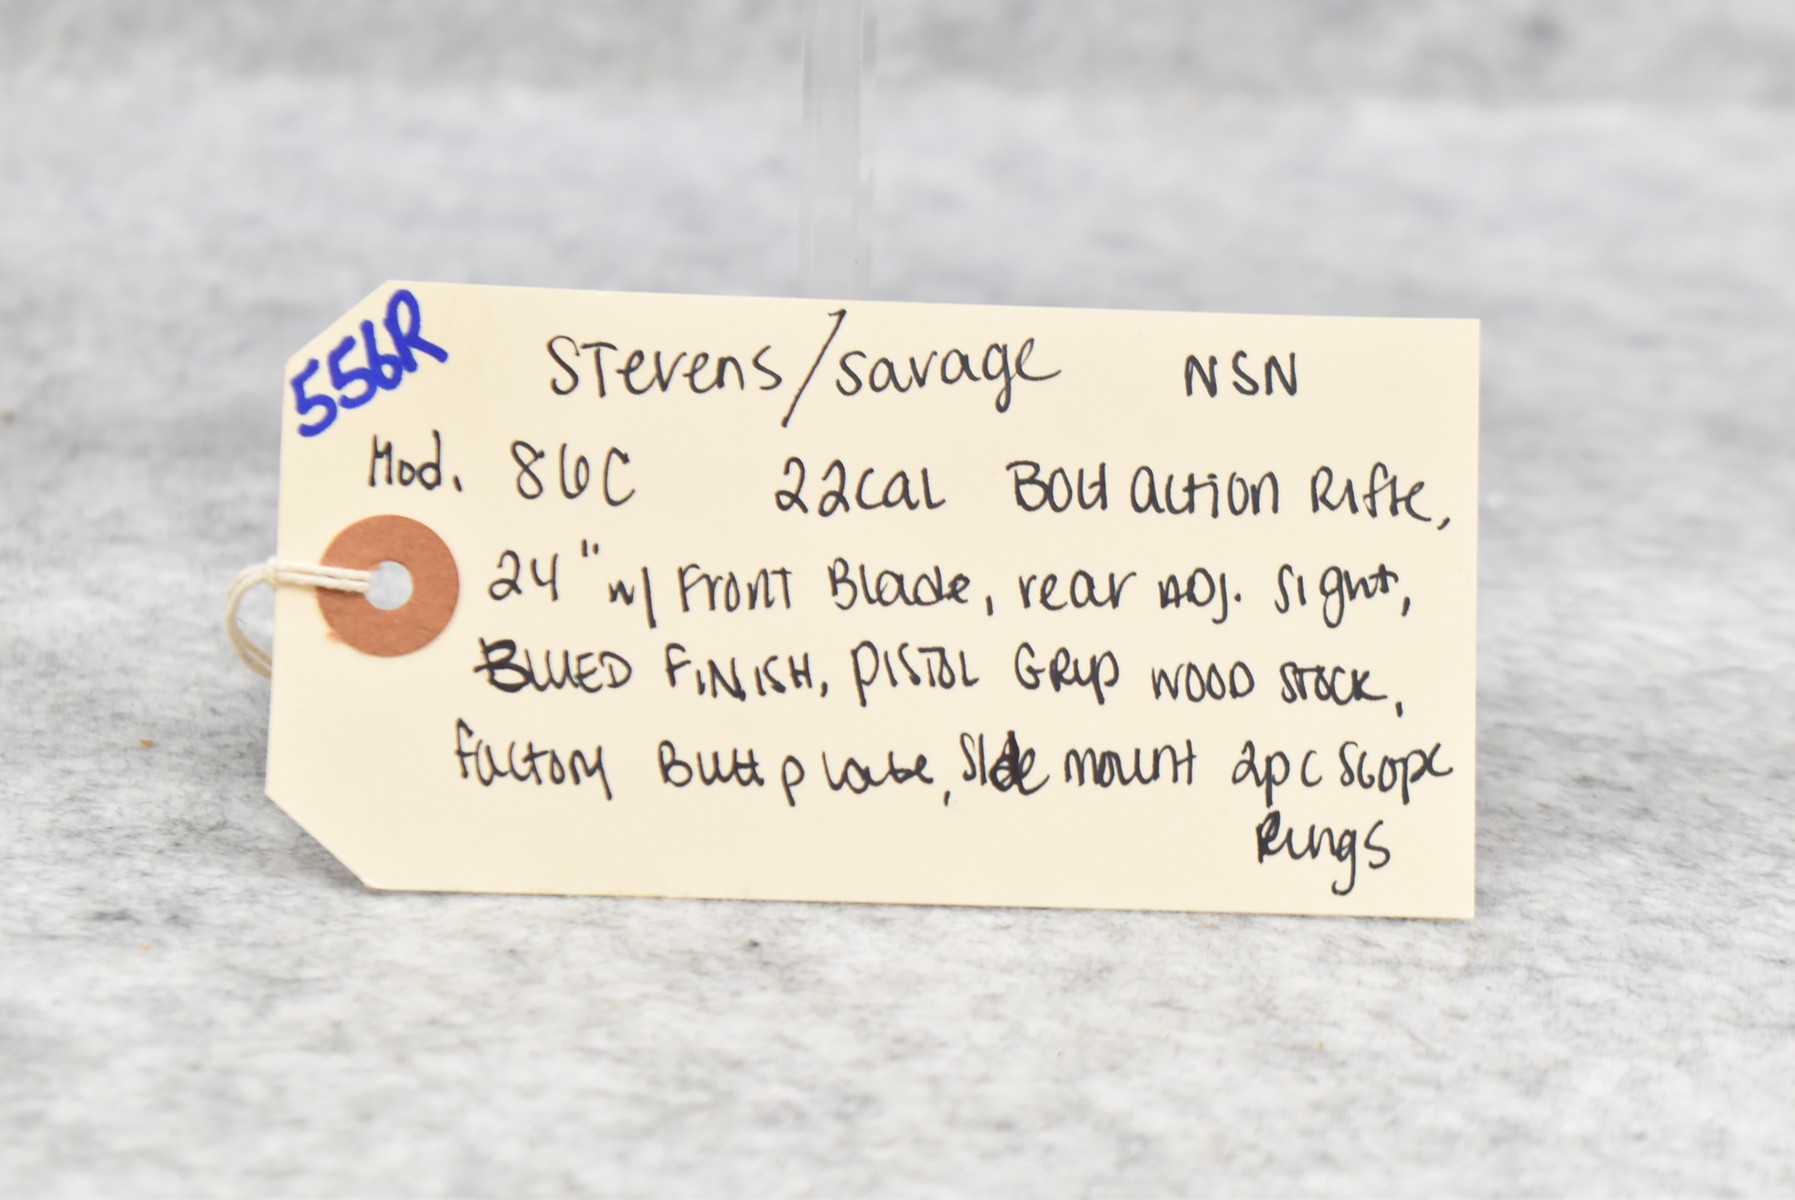 556R
Stevens/Savage NSN
Mod. 86C 22cal Bolt Action Rifle,
24" w/ Front Blade, rear ADJ. Sight,
BLUED FINISH, PISTOL GRIP WOOD STOCK,
factory Butt plate, Side mount 2pc Scope
Rings